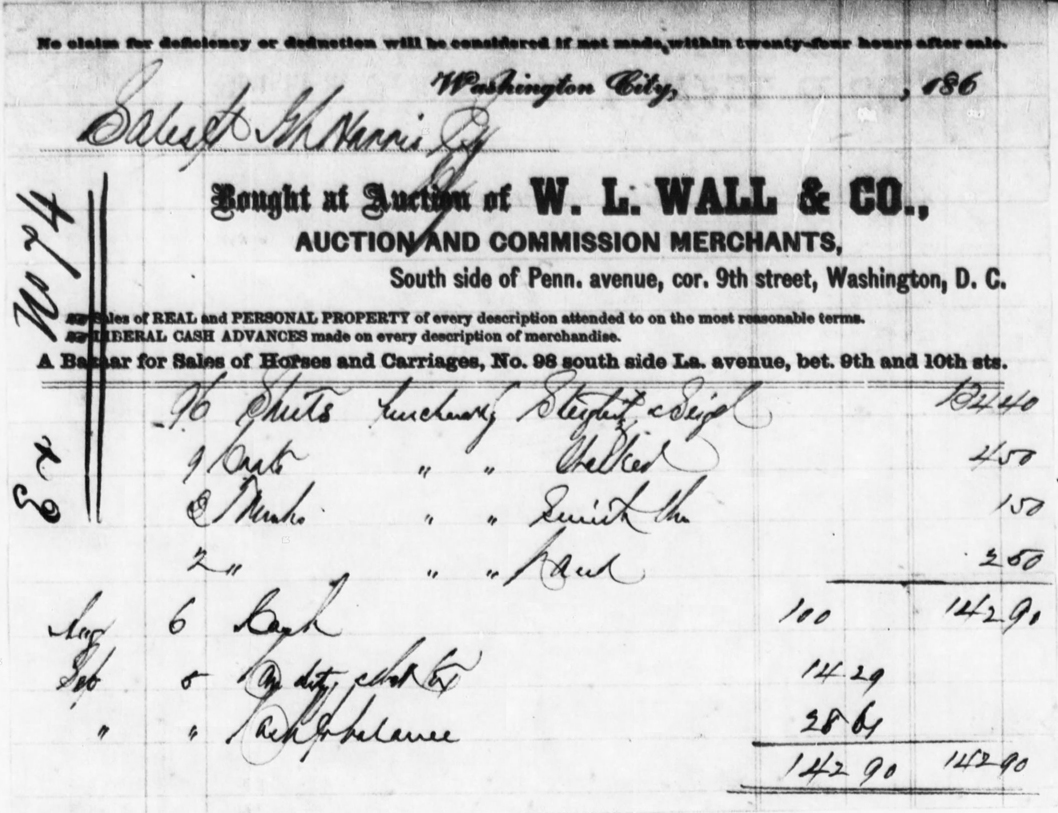 No claim for deficiency or deduction will be considered if not made within twenty-four hours after sale.
Washington City, , 186
Sales J H Harris Esq
Bought at Auction of W. L. WALL & CO.,
AUCTION AND COMMISSION MERCHANTS,
South side of Penn. avenue, cor. 9th street, Washington, D. C.
Sales of REAL and PERSONAL PROPERTY of every description attended to on the most reasonable terms.
LIBERAL CASH ADVANCES made on every description of merchandise.
A Bazaar for Sales of Horses and Carriages, No. 98 south side La. avenue, bet. 9th and 10th sts.
Ex No 74
96 Shirts & 40
9 Coats " " 4 50
3 Trunks " " Smith 1 50
2 " " " 2 50
Aug 6 Cash 100 142 90
Sep 14 29
" " Cash balance 28 61
142 90 142 90